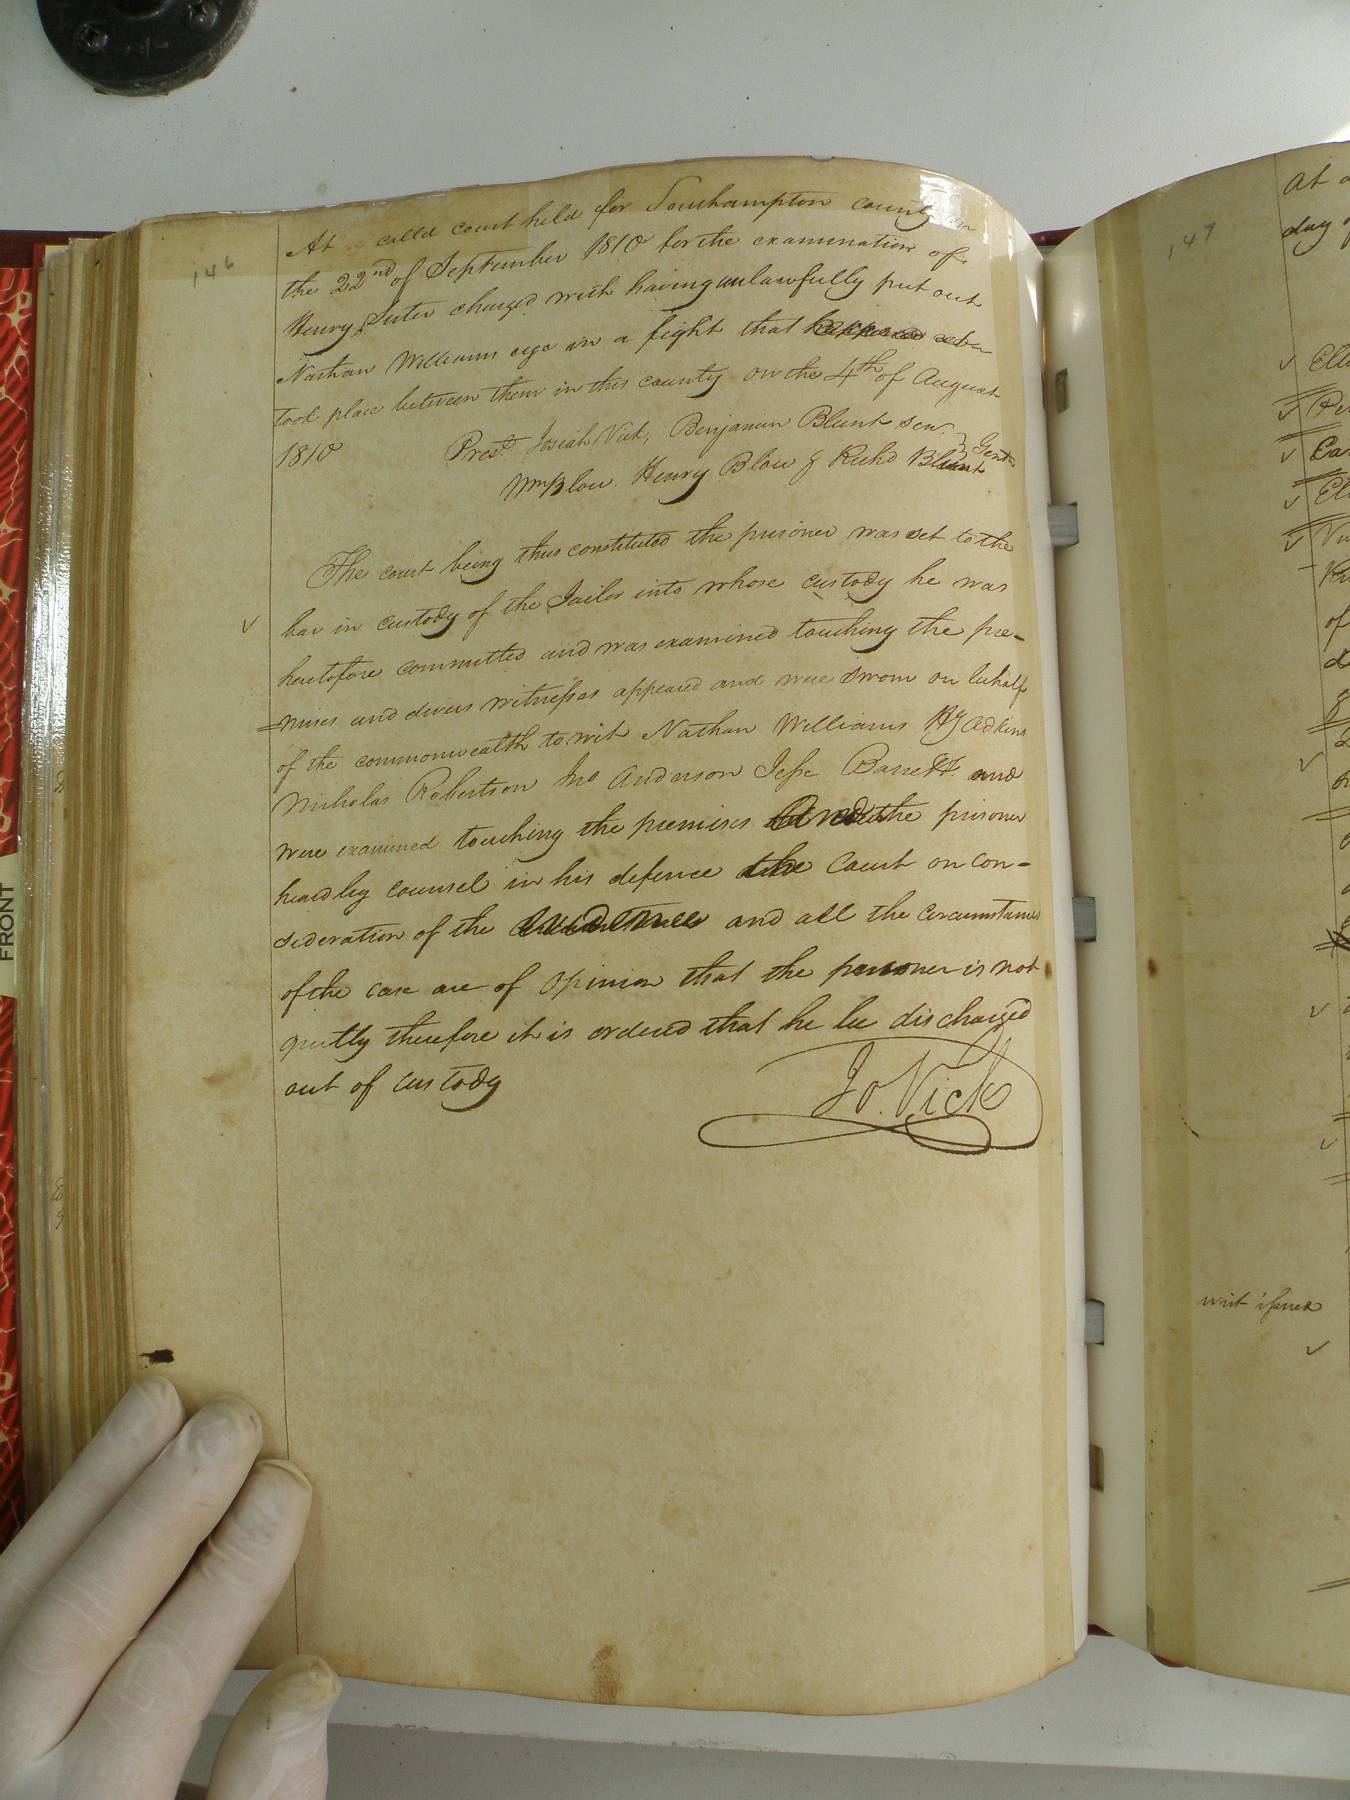 146
At called court held for Southampton county on
the 22nd of September 1810 for the examination of
Henry Suter charged with having unlawfully put out
Nathan Williams eye in a fight that
took place between them in this county on the 4th of August
1810 Prest. Josiah Vick, Benjamin Blunt sen. Gent
Wm Blow Henry Blow & Richd Blunt
The court being thus constituted the prisoner was set to the
bar in custody of the Jailor into whose custody he was
heretofore committed and was examined touching the pre-
=mises and divers witnesses appeared and were sworn on behalf
of the commonwealth to wit Nathan Williams Adkins
Nicholas Robertson Jno Anderson Jesse Barrett and
were examined touching the premises the prisoner
heard by counsel in his defence the Court on con-
sideration of the and all the circumstances
of the case are of opinion that the prisoner is not
guilty therefore it is ordered that he be discharged
out of custody
Jo. Vick
147
At a
day of
of
writ issued
FRONT